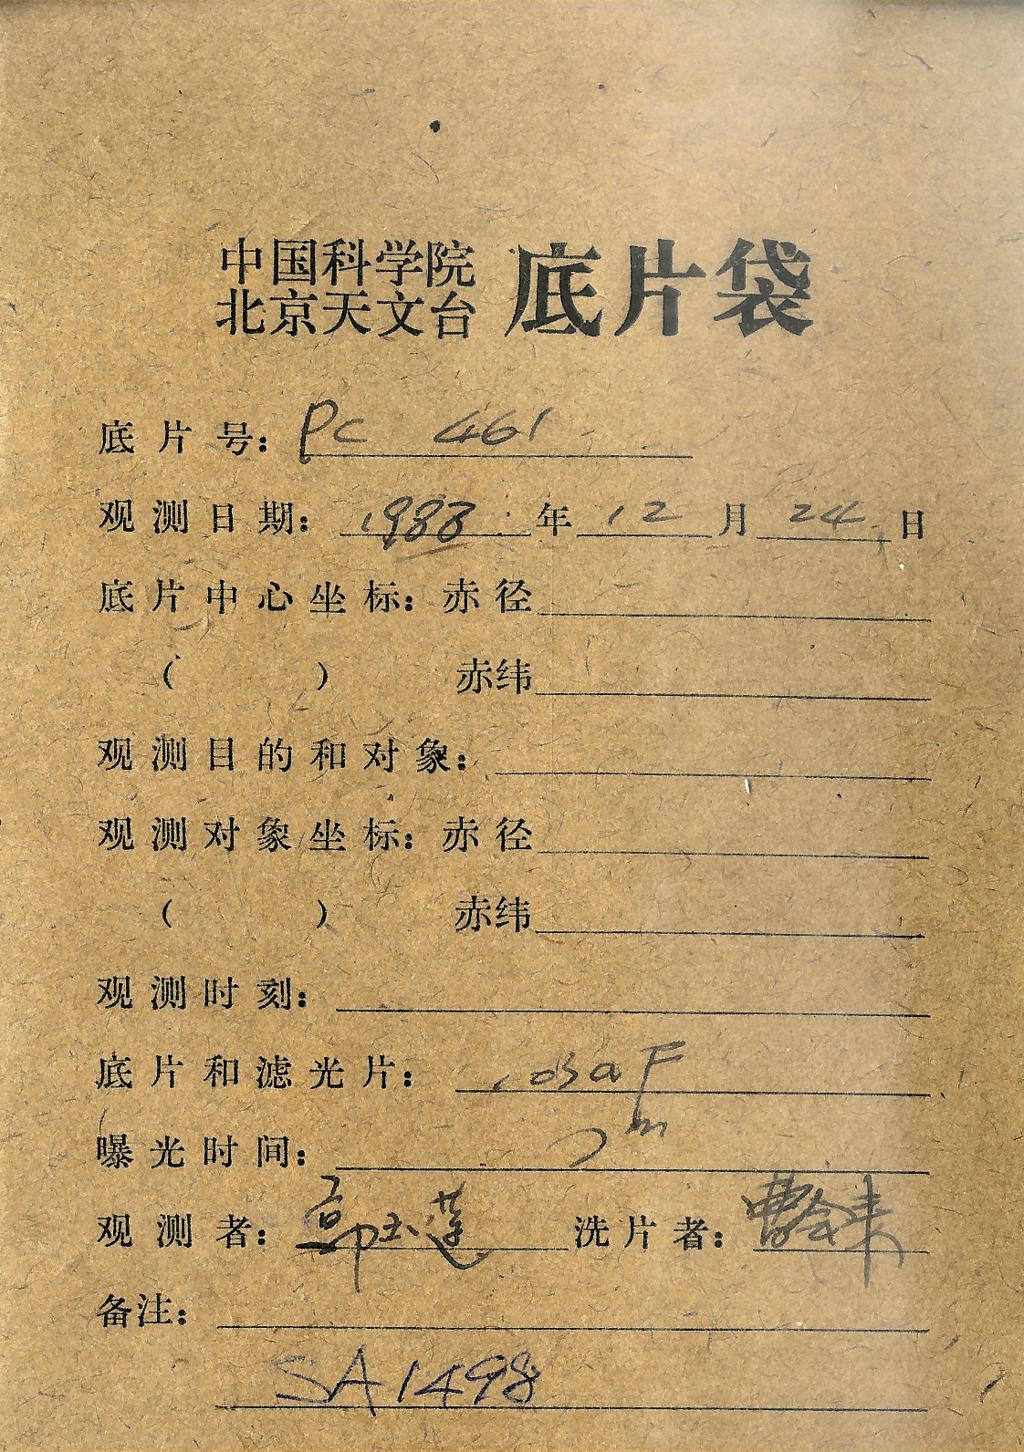 中国科学院
北京天文台 底片袋
底片号: PC 461
观测日期: 1983年12月24日
底片中心坐标: 赤径
( ) 赤纬
观测目的和对象:
观测对象坐标: 赤径
( ) 赤纬
观测时刻:
底片和滤光片: 103aF
曝光时间: m
观测者: 郭玉莲 洗片者: 曹
备注:
SA1498